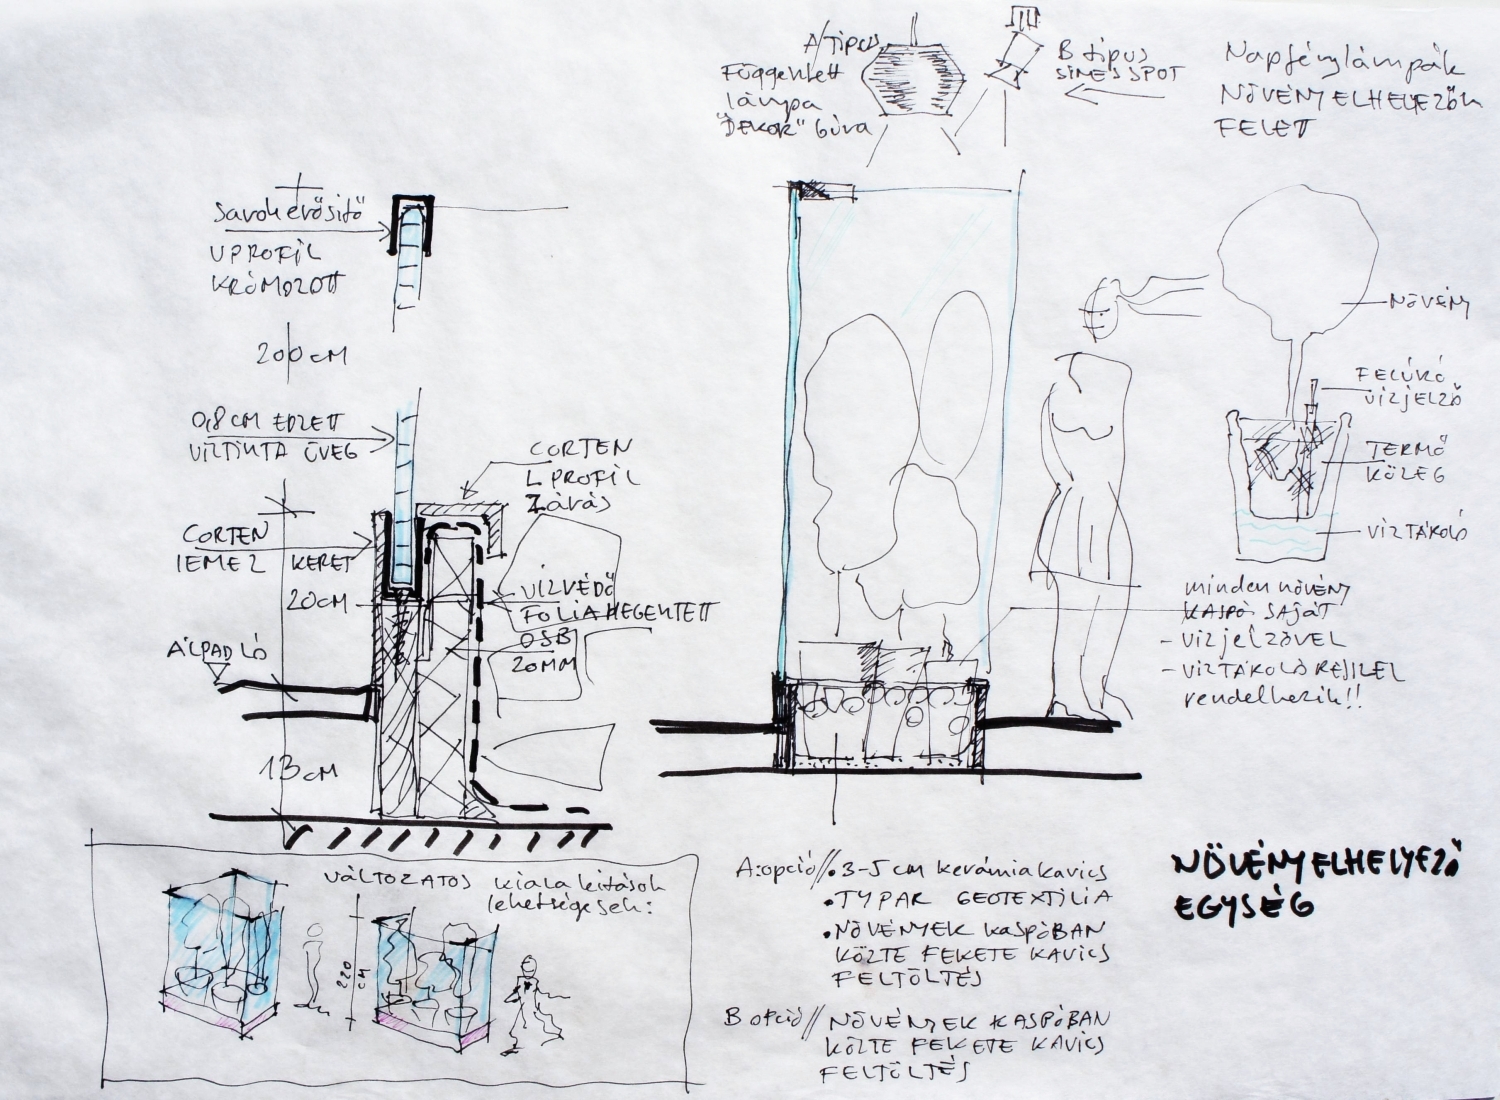 A/TIPUS
Függesztett
lámpa
"DEKOR" búra
B típus
SINES SPOT
Napfénylámpák
NÖVÉNYELHELYEZŐK
FELETT
Sarokerősítő
U PROFIL
KRÓMOZOTT
200 CM
0,8 CM EDZETT
VÍZTISZTA ÜVEG
CORTEN
LEMEZ KERET
20CM
ÁLPADLÓ
13 CM
CORTEN
L PROFIL
Zárás
VÍZVÉDŐ
FÓLIA HEGESZTETT
OSB
20MM
NÖVÉNY
FELÚSZÓ
VÍZJELZŐ
TERMŐ
KÖZEG
VÍZTÁROLÓ
minden növény
KASPÓ SAJÁT
- VÍZJELZŐVEL
- VÍZTÁROLÓ RÉSZZEL
rendelkezik!!
VÁLTOZATOS kialakítások
lehetségesek:
220
CM
A: opció // • 3-5 cm kerámiakavics
• TYPAR GEOTEXTÍLIA
• NÖVÉNYEK KASPÓBAN
KÖZTE FEKETE KAVICS
FELTÖLTÉS
B opció // NÖVÉNYEK KASPÓBAN
KÖZTE FEKETE KAVICS
FELTÖLTÉS
NÖVÉNYELHELYEZŐ
EGYSÉG